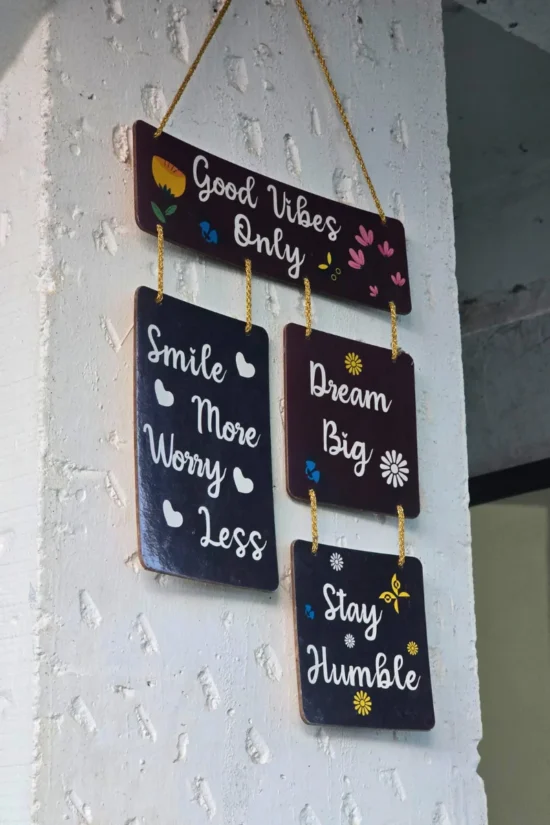 Good Vibes
Only
Smile
More
Worry
Less
Dream
Big
Stay
Humble